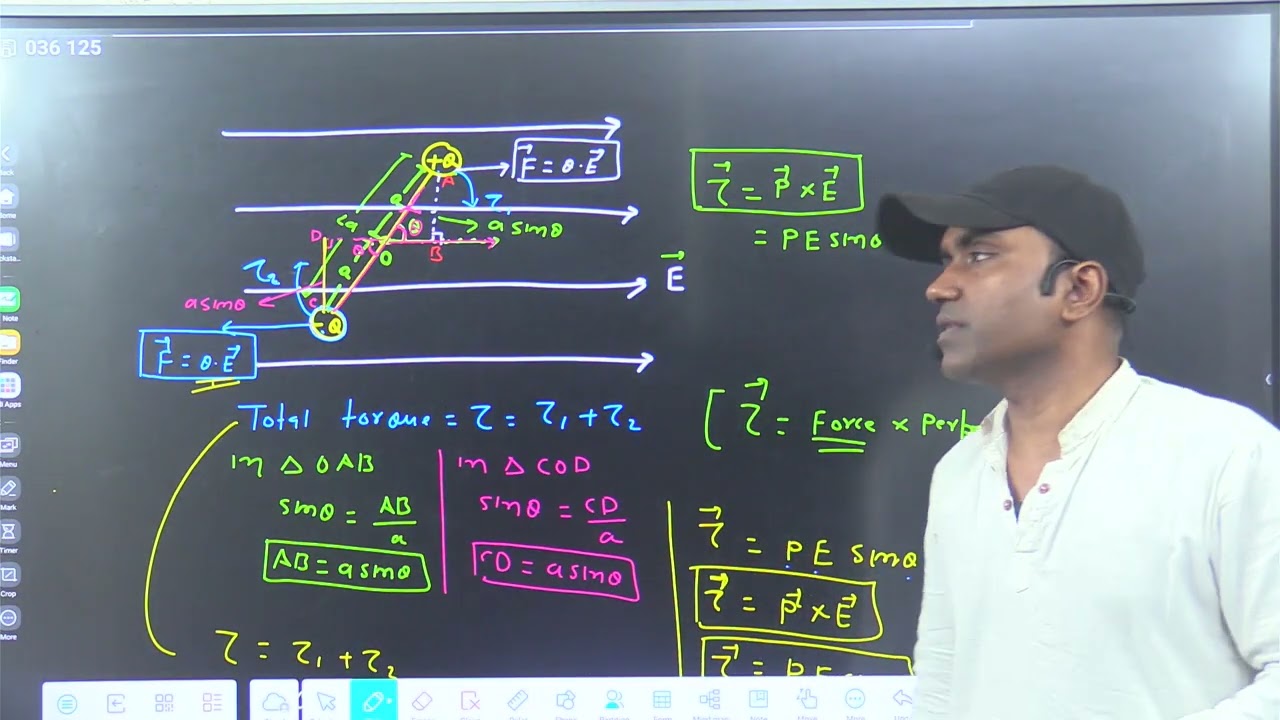 036 125
+Q
F⃗ = Q·E⃗
A
a
τ
2a
θ
a sinθ
D
B
O
τ₂
a
E⃗
a sinθ
C
-Q
F⃗ = Q·E⃗
Total torque = τ = τ₁ + τ₂
In Δ OAB
sinθ = AB/a
AB = a sinθ
In Δ COD
sinθ = CD/a
CD = a sinθ
τ = τ₁ + τ₂
τ⃗ = P⃗ × E⃗
= PE sinθ
[ τ⃗ = Force × Perp
τ⃗ = PE sinθ
τ⃗ = P⃗ × E⃗
τ⃗ = PE
Back
Home
Note
Finder
Apps
Menu
Mark
Timer
Crop
More